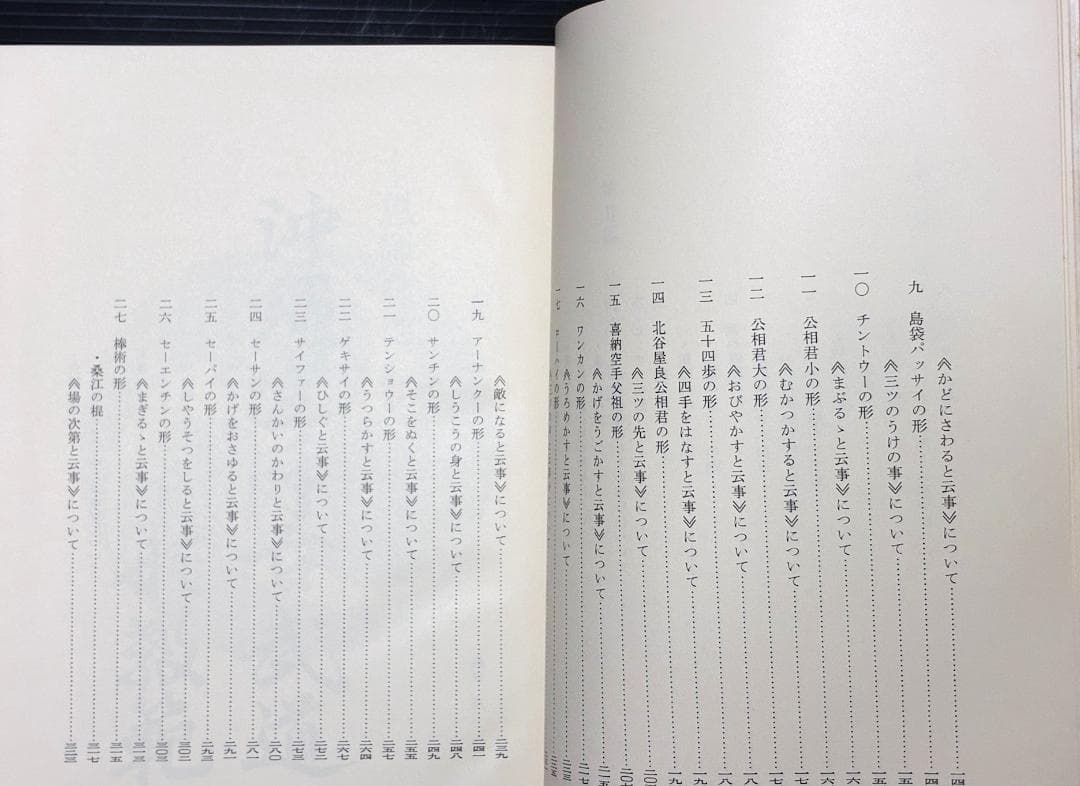 《かどにさわると云事》について
九 島袋パッサイの形
《三ツのうけの事》について
一〇 チントウーの形
《まぶるゝと云事》について
一一 公相君小の形
《むかつかすると云事》について
一二 公相君大の形
《おびやかすと云事》について
一三 五十四歩の形
《四手をはなすと云事》について
一四 北谷屋良公相君の形
《三ツの先と云事》について
一五 喜納空手父祖の形
《かげをうごかすと云事》について
一六 ワンカンの形
《うろめかすと云事》について
一七
《敵になると云事》について 二三九
一九 アーナンクーの形 二四一
《しうこうの身と云事》について 二四八
二〇 サンチンの形 二四九
《そこをぬくと云事》について 二五五
二一 テンショウーの形 二五七
《うつらかすと云事》について 二六四
二二 ゲキサイの形 二六七
《ひしぐと云事》について 二七二
二三 サイファーの形 二七三
《さんかいのかわりと云事》について 二八〇
二四 セーサンの形 二八一
《かげをおさゆると云事》について 二九一
二五 セーパイの形 二九三
《しやうそつをしると云事》について
二六 セーエンチンの形 三〇三
《まぎるゝと云事》について 三一三
二七 棒術の形 三一五
・桑江の棍 三一七
《場の次第と云事》について 三二三